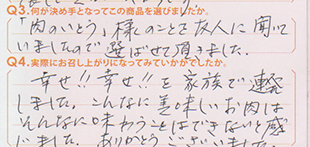 Q3.何が決め手となってこの商品を選びましたか。
「肉のいとう」様のことを友人に聞いて
いましたので選ばせて頂きました。
Q4.実際にお召し上がりになってみていかがでしたか。
幸せ!!幸せ!!を家族で連発
しました。こんなに美味しいお肉は
そんなに味わうことはできないと感
じました。ありがとうございました。